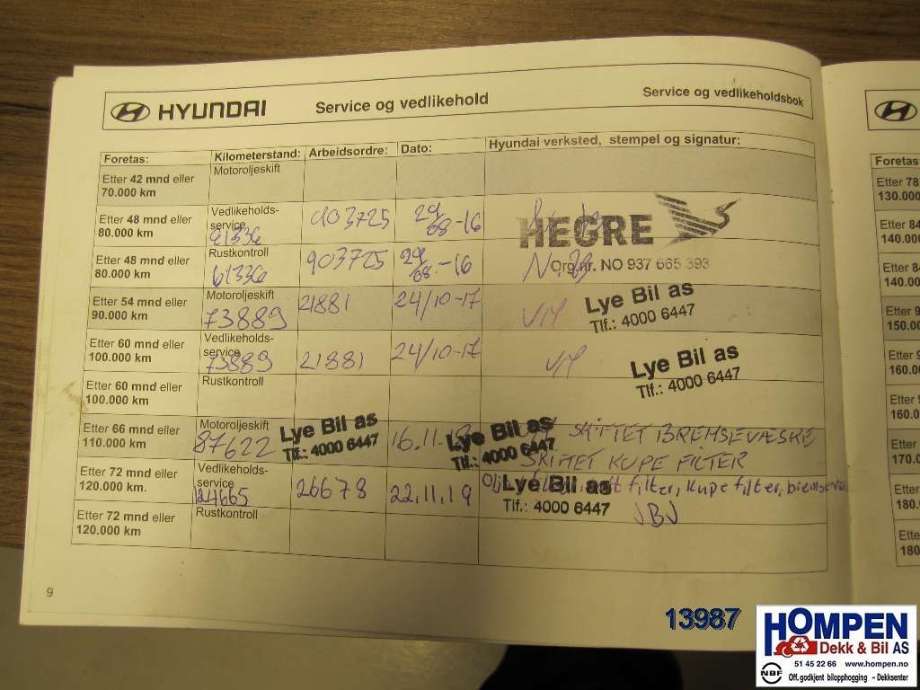 HYUNDAI Service og vedlikehold Service og vedlikeholdsbok
Foretas: Kilometerstand: Arbeidsordre: Dato: Hyundai verksted, stempel og signatur:
Etter 42 mnd eller Motoroljeskift
70.000 km
Etter 48 mnd eller Vedlikeholds-
80.000 km service 61336 903725 29/08-16
HEGRE
Etter 48 mnd eller Rustkontroll
80.000 km 61336 903725 29/08-16
Org.nr. NO 937 665 393
Etter 54 mnd eller Motoroljeskift
90.000 km 73889 21881 24/10-17
Lye Bil as
Tlf.: 4000 6447
Etter 60 mnd eller Vedlikeholds-
100.000 km service 73889 21881 24/10-17
Lye Bil as
Tlf.: 4000 6447
Etter 60 mnd eller Rustkontroll
100.000 km
Etter 66 mnd eller Motoroljeskift
110.000 km 87622 Lye Bil as 16.11.18 Lye Bil as BREMSEVÆSKE
Tlf.: 4000 6447 Tlf.: 4000 6447
SKIFTET KUPE FILTER
Etter 72 mnd eller Vedlikeholds-
120.000 km. service 124665 26678 22.11.19 Lye Bil as filter, kupe filter,
Tlf.: 4000 6447 JBJ
Etter 72 mnd eller Rustkontroll
120.000 km
9
Foretas:
Etter 78
130.000
Etter 84
140.000
Etter 84
140.00
Etter 9
150.00
Etter 9
160.00
Etter
160.0
Etter
170.0
Ette
180.
Ette
180
13987
HOMPEN
Dekk & Bil AS
51 45 22 66 • www.hompen.no
NBF Off.godkjent bilopphogging - Dekksenter